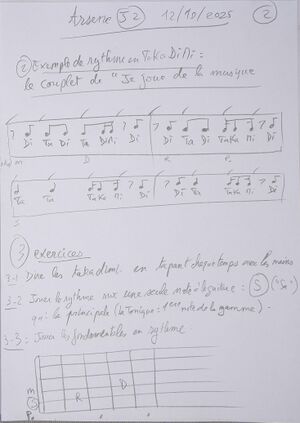 Arsene S2 12/10/2025 2
2 Exemple de rythme en TaKaDiMi =
le couplet de "Je joue de la musique
Di Ta Di Ta Di Di Di Ta Di TaKa Mi Di
m D R P
Ta Ta TaKa Mi Di Ta TaKa Mi Di
S
3 exercices
3-1 Dire les takadimi en tapant chaque temps avec les mains
3-2 Jouer le rythme sur une seule note à la guitare = S
qui la principale (la Tonique = 1ere note de la gamme).
3-3 : Jouer les fondamentales en rythme
m
S R D
P